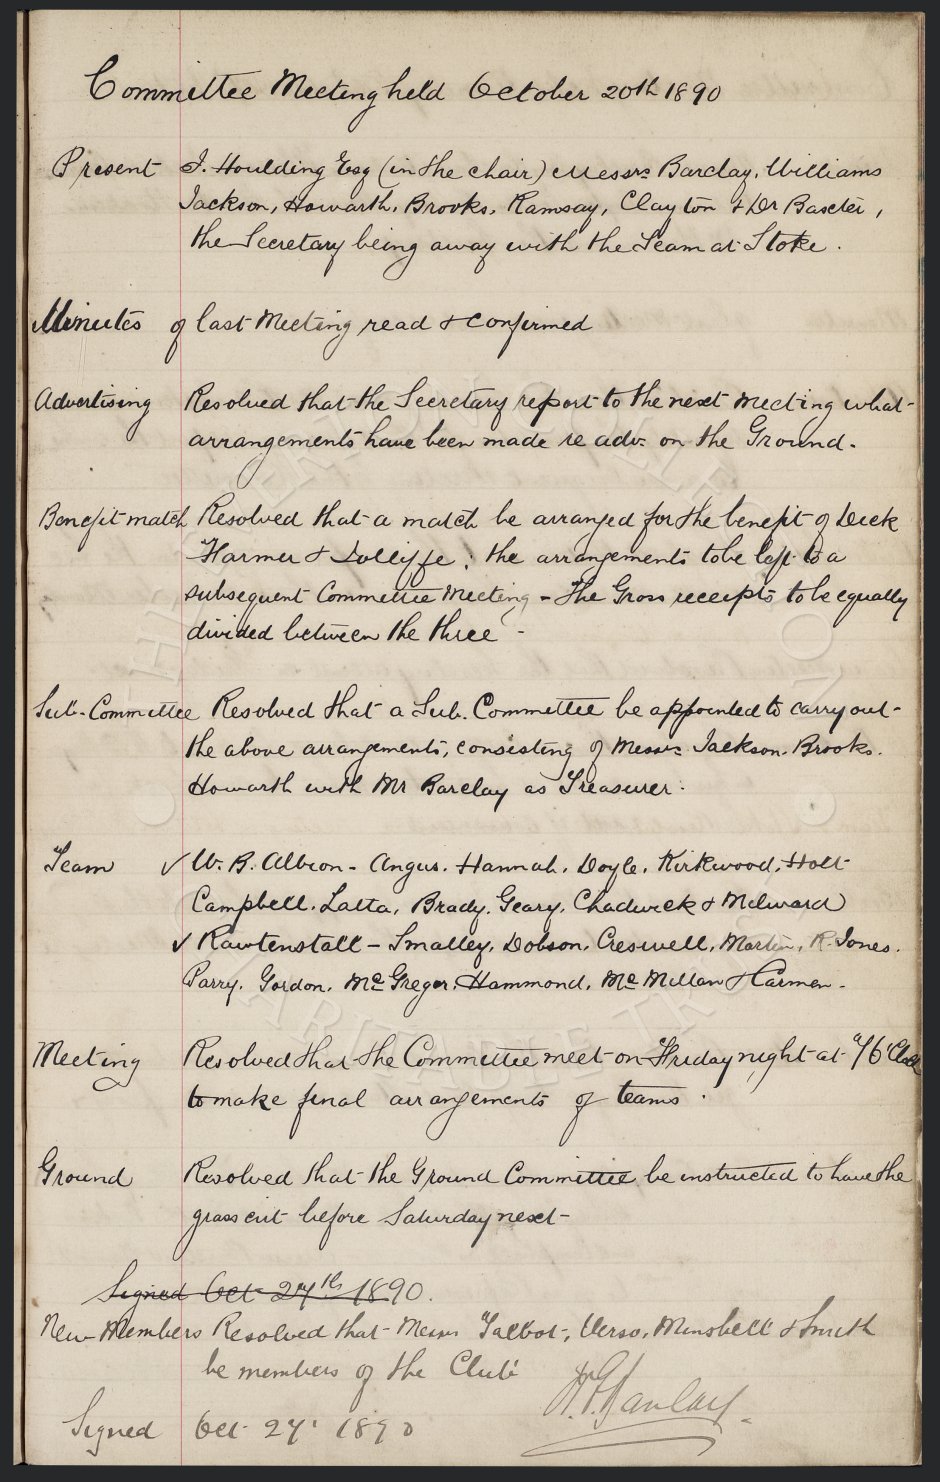 Committee Meeting held October 20th 1890
Present J. Houlding Esq (in the chair) Messrs Barclay, Williams
Jackson, Howarth, Brooks, Ramsay, Clayton & Dr Baxter,
the Secretary being away with the Team at Stoke.
Minutes of last Meeting read & confirmed
Advertising Resolved that the Secretary report to the next Meeting what
arrangements have been made re adv. on the Ground.
Benefit match Resolved that a match be arranged for the benefit of Dick
Harmer & Jolliffe; the arrangements to be left to a
subsequent Committee Meeting - The Gross receipts to be equally
divided between the three -
Sub-Committee Resolved that a Sub. Committee be appointed to carry out
the above arrangements, consisting of Messrs Jackson. Brooks.
Howarth with Mr Barclay as Treasurer.
Team ✓ W. B. Albion - Angus. Hannah. Doyle. Kirkwood. Holt
Campbell. Latta. Brady. Geary. Chadwick & Milward
✓ Rawtenstall - Smalley. Dobson. Creswell. Martin. R. Jones.
Parry. Gordon. McGregor. Hammond. McMillan & Carmen.
Meeting Resolved that the Committee meet on Friday night at 7 O'Clock
to make final arrangements of teams.
Ground Resolved that the Ground Committee be instructed to have the
grass cut before Saturday next
Signed Oct 27th 1890.
New Members Resolved that Messrs Talbot, Verso, Minshell & Smith
be members of the Club
Signed Oct 27 1890